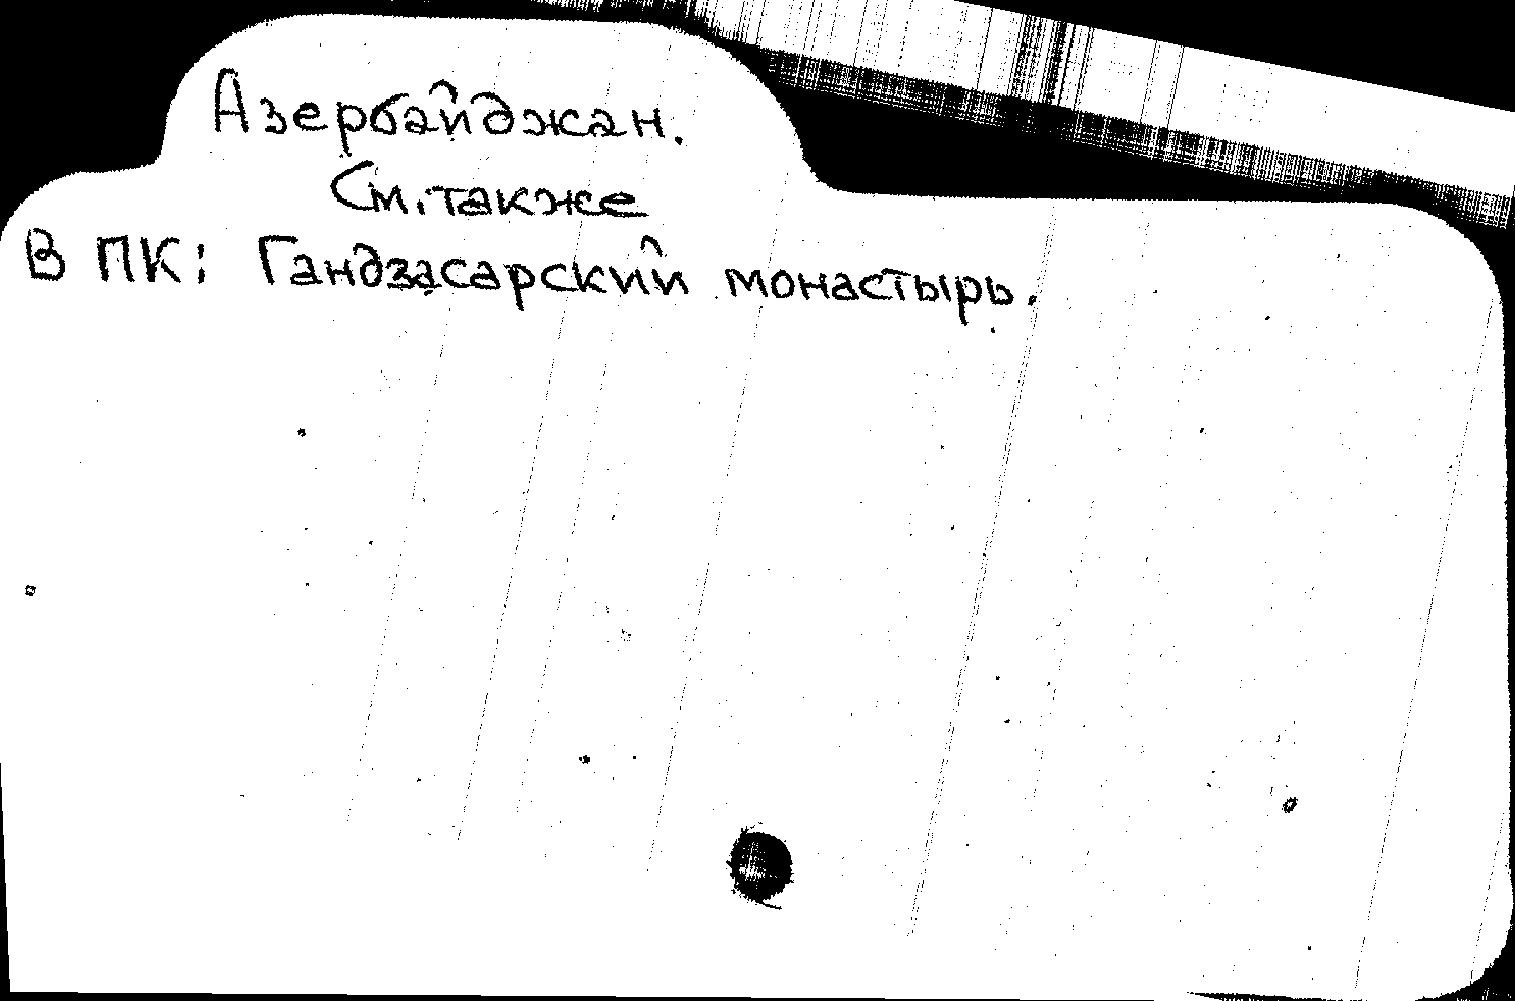 Азербайджан.
См. также
В ПК: Гандзасарский монастырь.